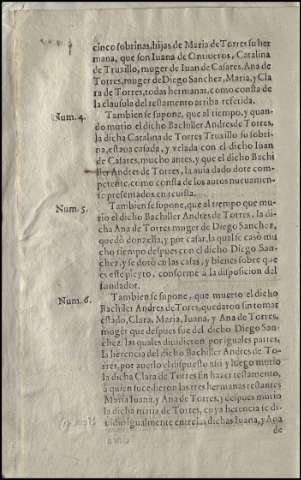 cinco sobrinas, hijas de Maria de Torres su her
mana, que son Iuana de Ontiueros, Catalina
de Truxillo, muger de Iuan de Casares, Ana de
Torres, muger de Diego Sanchez, Maria, y Cla
ra de Torres, todas hermanas, como consta de
la clausula del testamento arriba referida.
Num. 4.
Tambien se supone, que al tiempo, y quan-
do murio el dicho Bachiller Andres de Torres,
la dicha Catalina de Torres Truxillo su sobri-
na, estaua casada, y velada con el dicho Iuan
de Casares, mucho antes, y que el dicho Bachi
ller Andres de Torres, la auia dado dote com-
petente, como consta de los autos nueuamen-
te presentados en reuista.
Num. 5.
Tambien se supone, que al tiempo que mu-
rio el dicho Bachiller Andres de Torres, la di-
cha Ana de Torres muger de Diego Sanchez,
quedò donzella, y por casar, la qual se casò mu
cho tiempo despues con el dicho Diego San-
chez, y se dotò en las casas, y bienes sobre que
es este pleyto, conforme a la disposicion del
fundador.
Num. 6.
Tambien se supone, que muerto el dicho
Bachiller Andres de Torres, quedaron sin tomar
estado, Clara, Maria, Iuana, y Ana de Torres,
moger que despues fue del dicho Diego San-
chez, las quales diuidieron por iguales partes,
la herencia del dicho Bachiller Andres de To-
rres, por auerlo dispuesto assi y luego murio
la dicha Clara de Torres sin hazer testamento,
a quien sucedieron las tres hermanas restantes
Maria Iuana, y Ana de Torres, y despues murio
la dicha Maria de Torres, cuya herencia se di-
uidio igualmente entre las dichas Iuana, y Ana
de